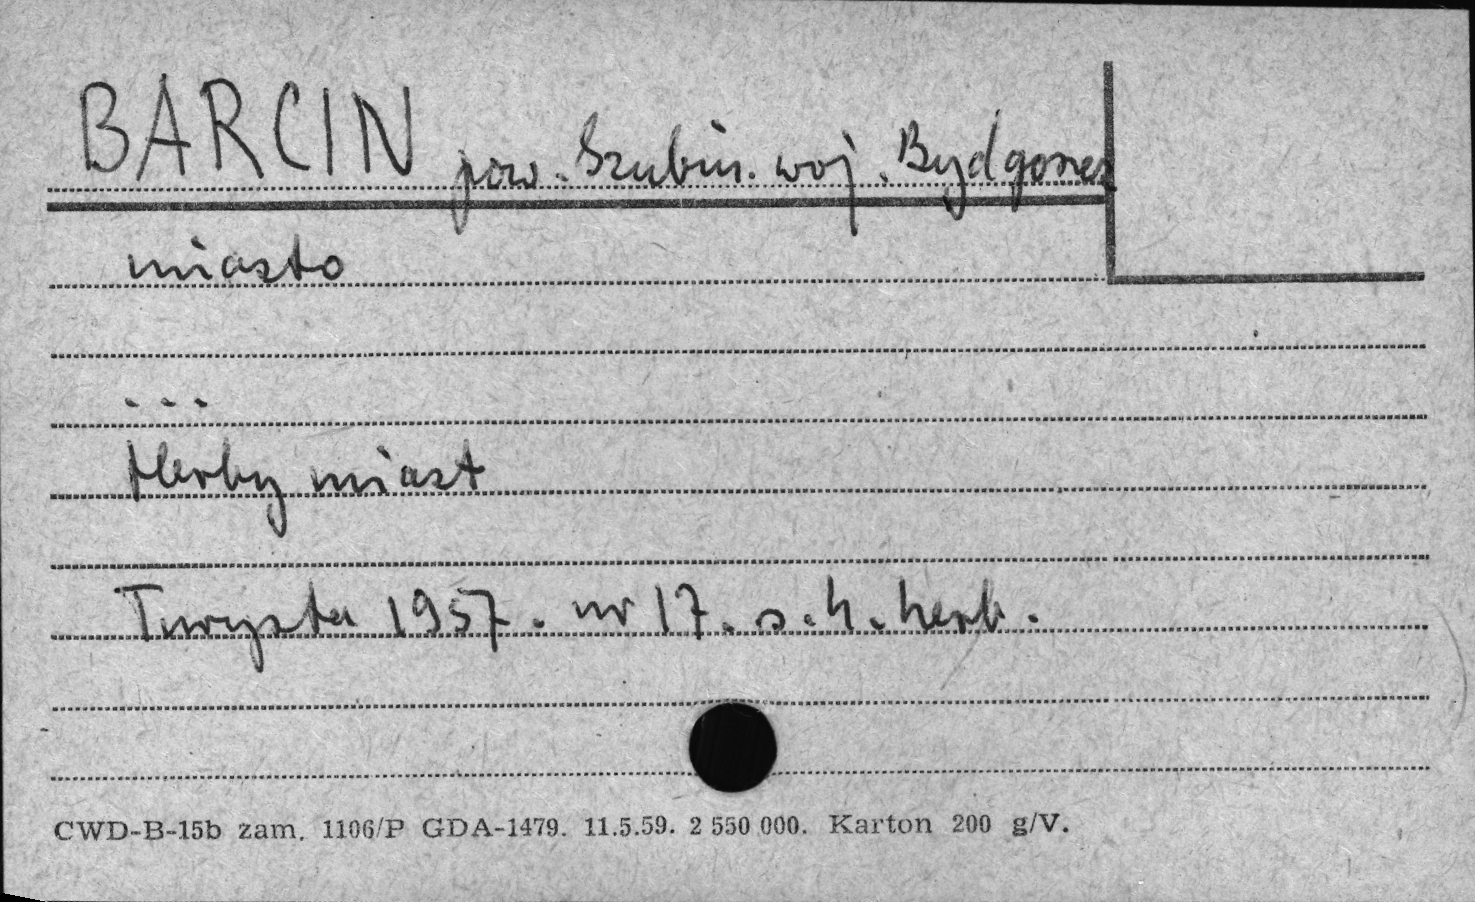 BARCIN pow. Szubin. woj. Bydgoszcz
miasto
...
Herby miast
Turysta 1957. nr 17. s. 4. herb.
CWD-B-15b zam. 1106/P GDA-1479. 11.5.59. 2 550 000. Karton 200 g/V.